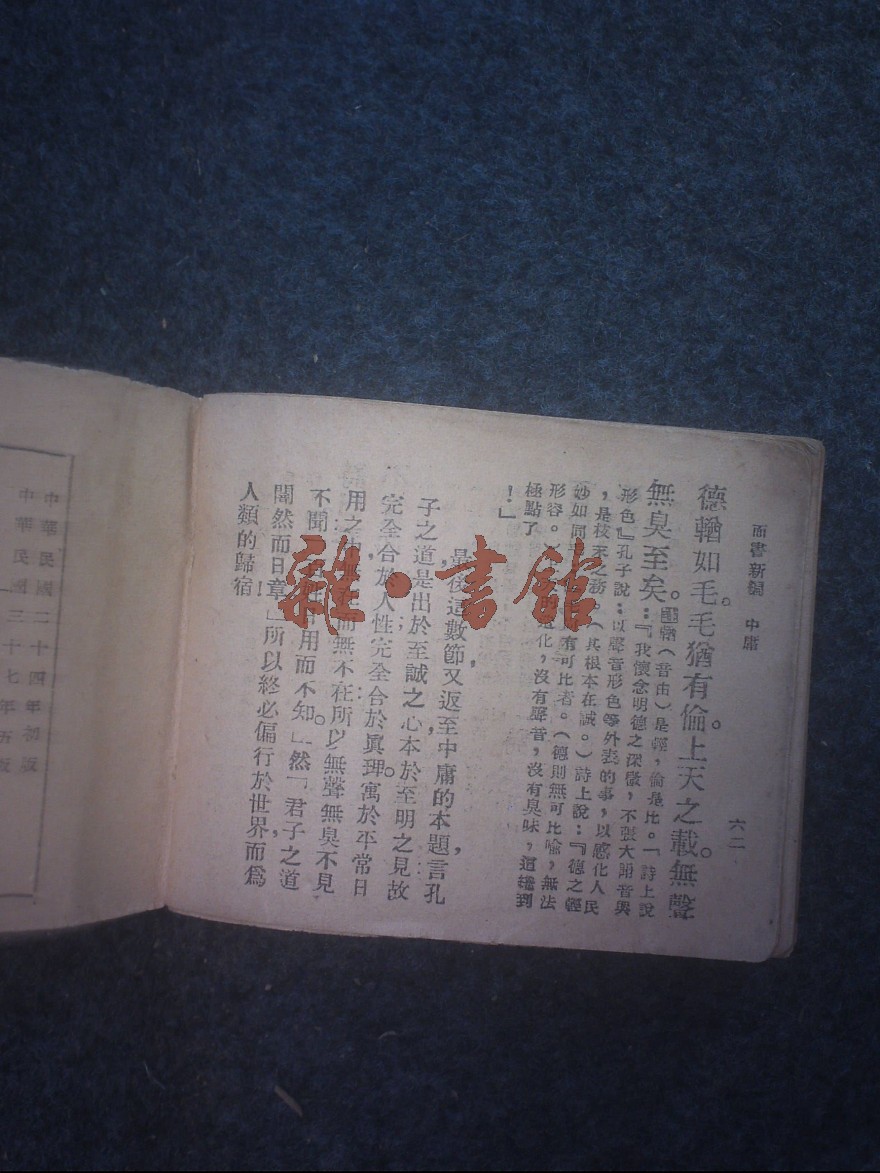 四書新編 中庸 六二
德輶如毛。毛猶有倫。上天之載。無聲
無臭。至矣。
輶（音由）是輕，倫是比。「詩上說
：『我懷念明德之深微，不張大語音與
形色。』孔子說：以聲音形色等外表的事，以感化人民
，是枝末之務。（其根本在誠。）詩上說：『德之輕
妙如同
有可比者。（德則無可比喻，無法
形容。）
化，沒有聲音，沒有臭味，這纔到
極點了
！」
最後這數節，又返至中庸的本題，言孔
子之道，是出於至誠之心，本於至明之見，故
完全合於人性；完全合於眞理。寓於平常日
用之
而無不在；所以無聲無臭，不見
不聞，
用而不知。」然「君子之道，
闇然而日章，」所以終必偏行於世界，而爲
人類的歸宿！
中華民國二十四年初版
中華民國三十七年五版
雜·書館